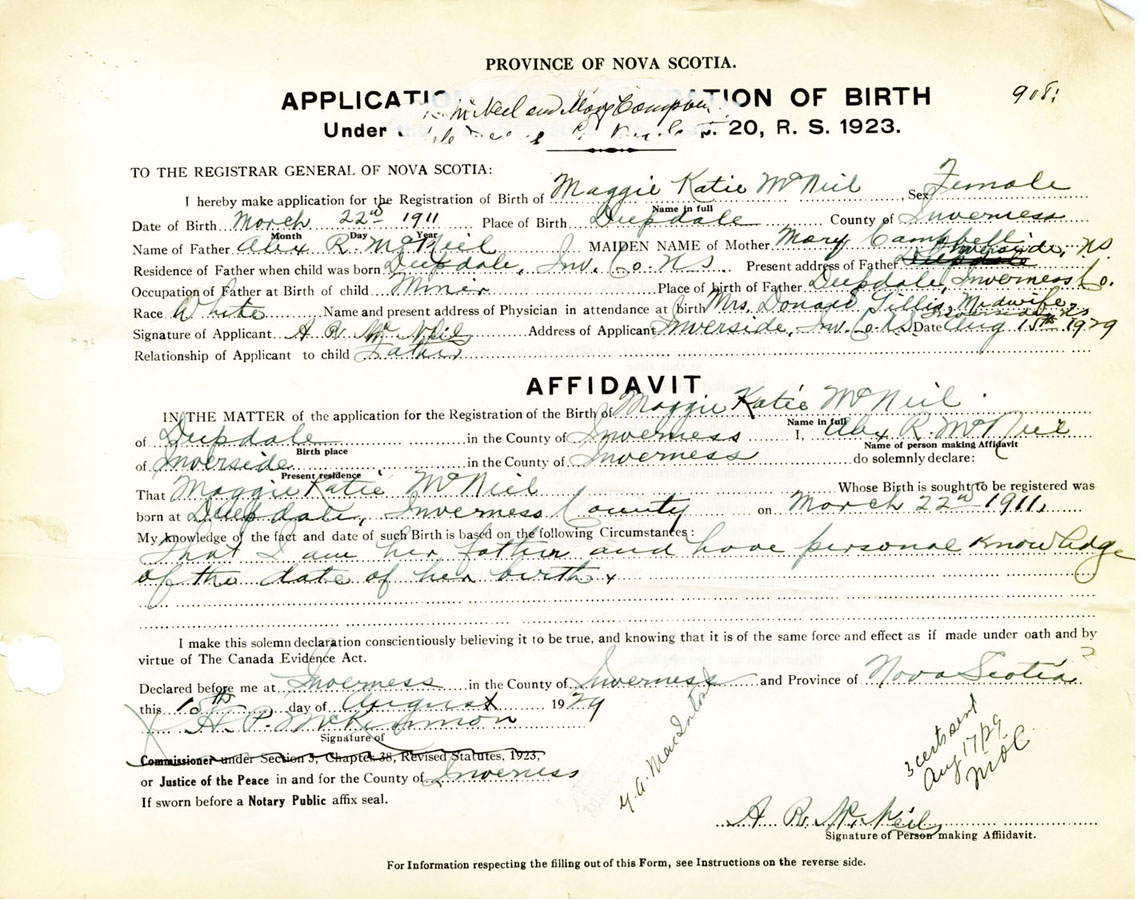 PROVINCE OF NOVA SCOTIA.
APPLICATIO TION OF BIRTH 908:
McNeil and Mary Campbell
Under . 20, R. S. 1923.
TO THE REGISTRAR GENERAL OF NOVA SCOTIA:
I hereby make application for the Registration of Birth of Maggie Katie McNeil, Sex Female
Name in full
Date of Birth March 22nd 1911 Place of Birth Deepdale County of Inverness
Month Day Year
Name of Father Alex R. McNeil MAIDEN NAME of Mother Mary Campbell
Residence of Father when child was born Deepdale, Inv. Co. N S Present address of Father Deepdale Inverside, N S.
Occupation of Father at Birth of child Miner Place of birth of Father Deepdale, Inverness Co.
Race White Name and present address of Physician in attendance at birth Mrs. Donald Gillis, Midwife
Signature of Applicant A R McNeil Address of Applicant Inverside, Inv. Co. N S Date Aug 15th 1929
Relationship of Applicant to child Father
AFFIDAVIT
IN THE MATTER of the application for the Registration of the Birth of Maggie Katie McNeil.
Name in full
of Deepdale in the County of Inverness I, Alex R. McNeil
Birth place Name of person making Affidavit
of Inverside in the County of Inverness do solemnly declare:
Present residence
That Maggie Katie McNeil Whose Birth is sought to be registered was
born at Deepdale, Inverness County on March 22nd 1911.
My knowledge of the fact and date of such Birth is based on the following Circumstances:
That I am her father and have personal knowledge
of the date of her birth.
I make this solemn declaration conscientiously believing it to be true, and knowing that it is of the same force and effect as if made under oath and by
virtue of The Canada Evidence Act.
Declared before me at Inverness in the County of Inverness and Province of Nova Scotia
this 15th day of August 1929
H. P. McKinnon
Signature of
Commissioner under Section 3, Chapter 38, Revised Statutes, 1923,
or Justice of the Peace in and for the County of Inverness
If sworn before a Notary Public affix seal.
MacIntosh
3 certs sent
Aug 17/29
A R McNeil
Signature of Person making Affidavit.
For Information respecting the filling out of this Form, see Instructions on the reverse side.